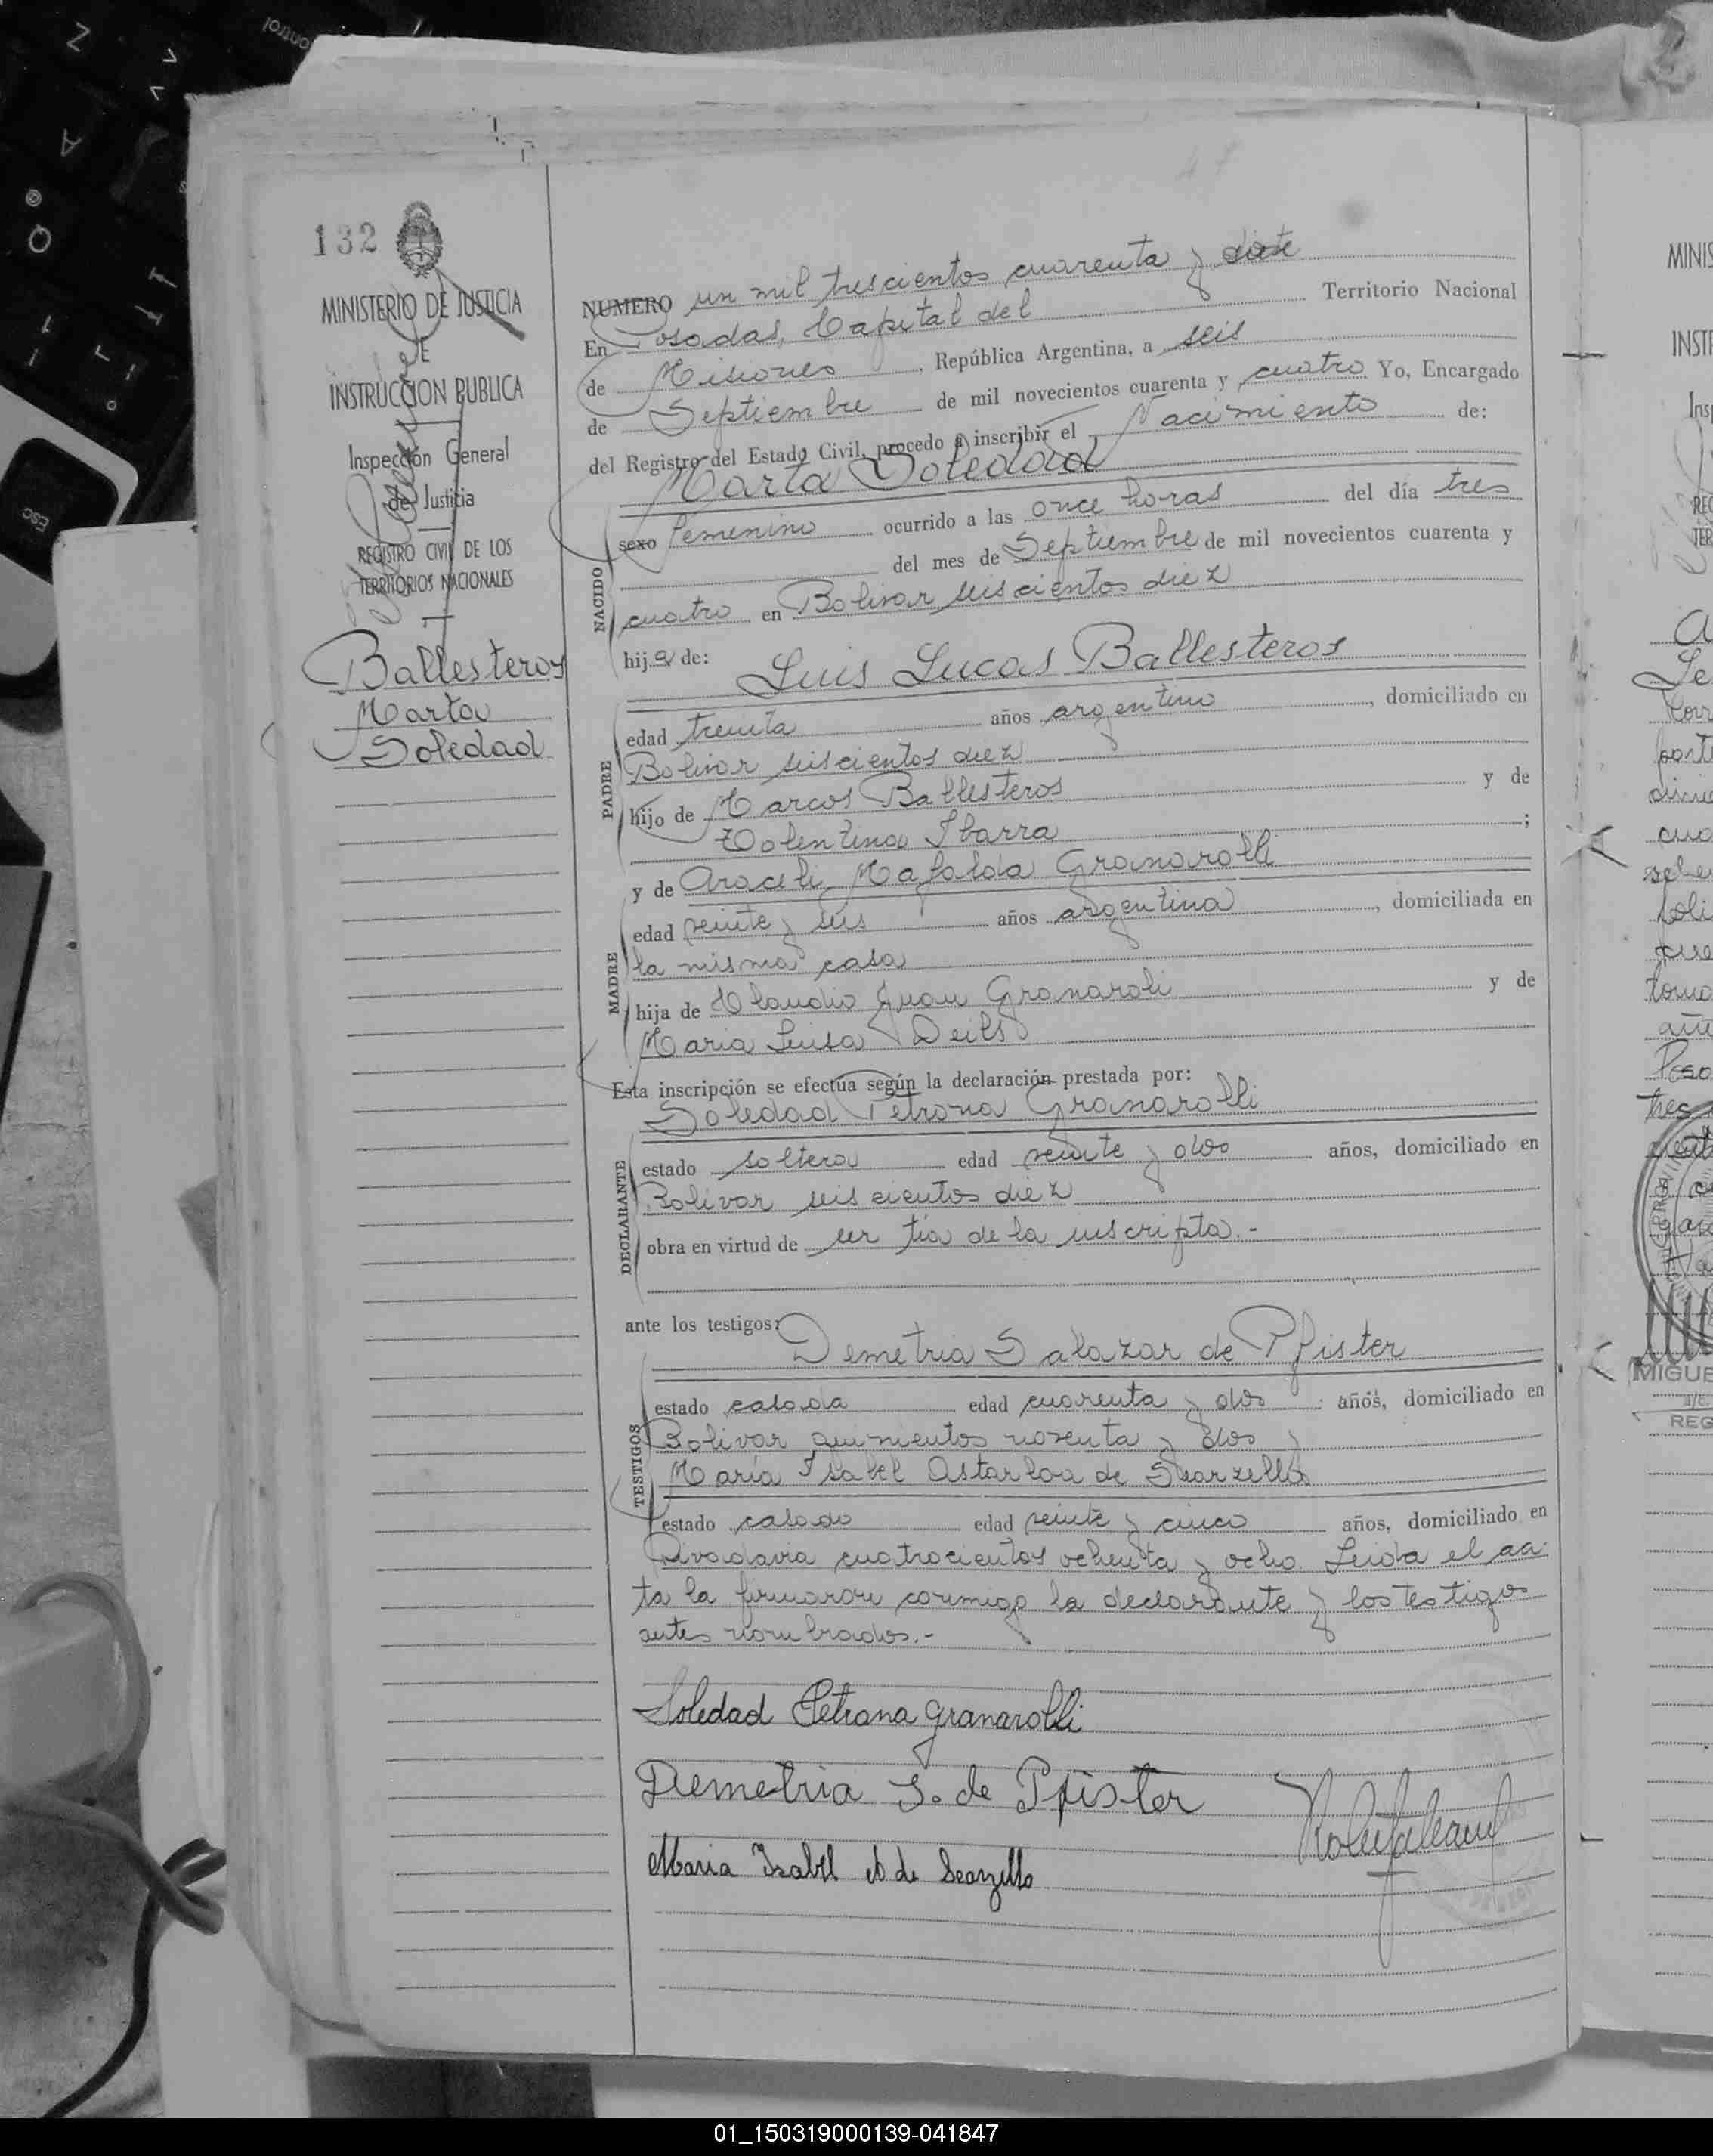 132
MINISTERIO DE JUSTICIA
E
INSTRUCCION PUBLICA
Inspección General
de Justicia
REGISTRO CIVIL DE LOS
TERRITORIOS NACIONALES
Ballesteros
Marta
Soledad
47
NUMERO un mil trescientos cuarenta y siete
En Posadas, Capital del Territorio Nacional
de Misiones, República Argentina, a seis
de Septiembre de mil novecientos cuarenta y cuatro Yo, Encargado
del Registro del Estado Civil, procedo a inscribir el Nacimiento de:
Marta Soledad
sexo femenino ocurrido a las once horas del día tres
del mes de Septiembre de mil novecientos cuarenta y
cuatro en Bolivar seiscientos diez
NACIDO
hija de: Luis Lucas Ballesteros
edad treinta años argentino, domiciliado en
Bolivar seiscientos diez
PADRE
hijo de Marcos Ballesteros y de
Ibarra;
y de Araceli Mafalda Granarolli
edad veinte y seis años argentina, domiciliada en
la misma casa
MADRE
hija de Claudio Juan Granaroli y de
Maria Luisa
Esta inscripción se efectúa según la declaración prestada por:
Soledad Petrona Granarolli
estado soltera edad veinte y ocho años, domiciliado en
Bolivar seiscientos diez
DECLARANTE
obra en virtud de ser tía de la inscripta.-
ante los testigos: Demetria Salazar de Pfister
estado casada edad cuarenta y dos años, domiciliado en
Bolivar quinientos noventa y dos y
TESTIGOS
María Isabel Astarloa de Scarzello
estado casado edad veinte y cinco años, domiciliado en
Rivadavia cuatrocientos ochenta y ocho. Leida el ac-
ta la firmaron conmigo la declarante y los testigos
antes nombrados.-
Soledad Petrona Granarolli
Demetria S. de Pfister
Maria Isabel A de Scarzello
MINIS
INSTR
Insp
REG
TER
MIGUE
a/c.
REG
01_150319000139-041847